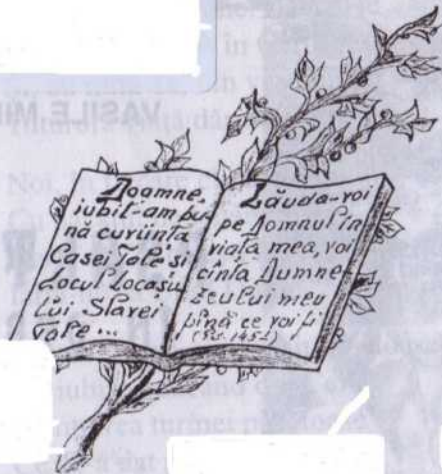 VASILE MI
Noi,
Doamne,
iubit-am bu-
nă cuviința
Casei Tale și
Locul Locașu-
lui Slavei
Tale ...
Lăuda-voi
pe Domnul în
viața mea, voi
cînta Dumne-
zeului meu
pînă ce voi fi